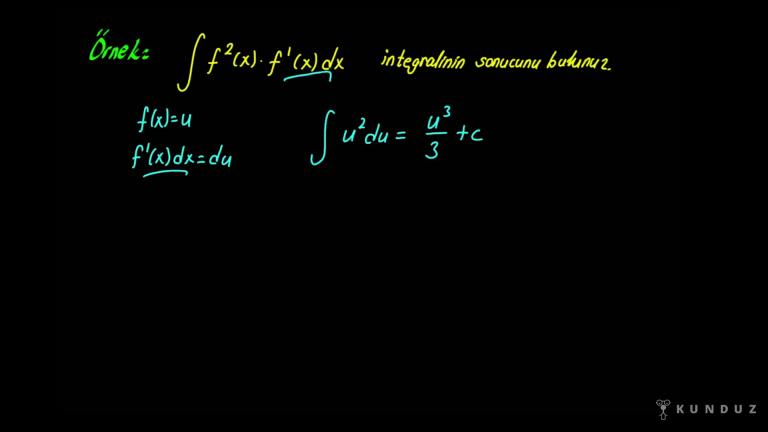 Örnek: ∫ f²(x) · f'(x) dx integralinin sonucunu bulunuz.
f(x)=u
f'(x)dx=du
∫ u²du = u³/3 + c
KUNDUZ